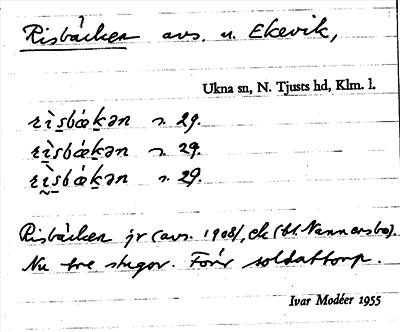 Risbäcken avs. u. Ekevik,
Ukna sn, N. Tjusts hd, Klm. l.
rìsbækən s. 29.
rìsbækən s. 29.
rìsbækən s. 29.
Risbäcken jr (avs. 1908), ek (bl. Nannersbo).
Nu tre stugor. Förr soldattorp.
Ivar Modéer 1955